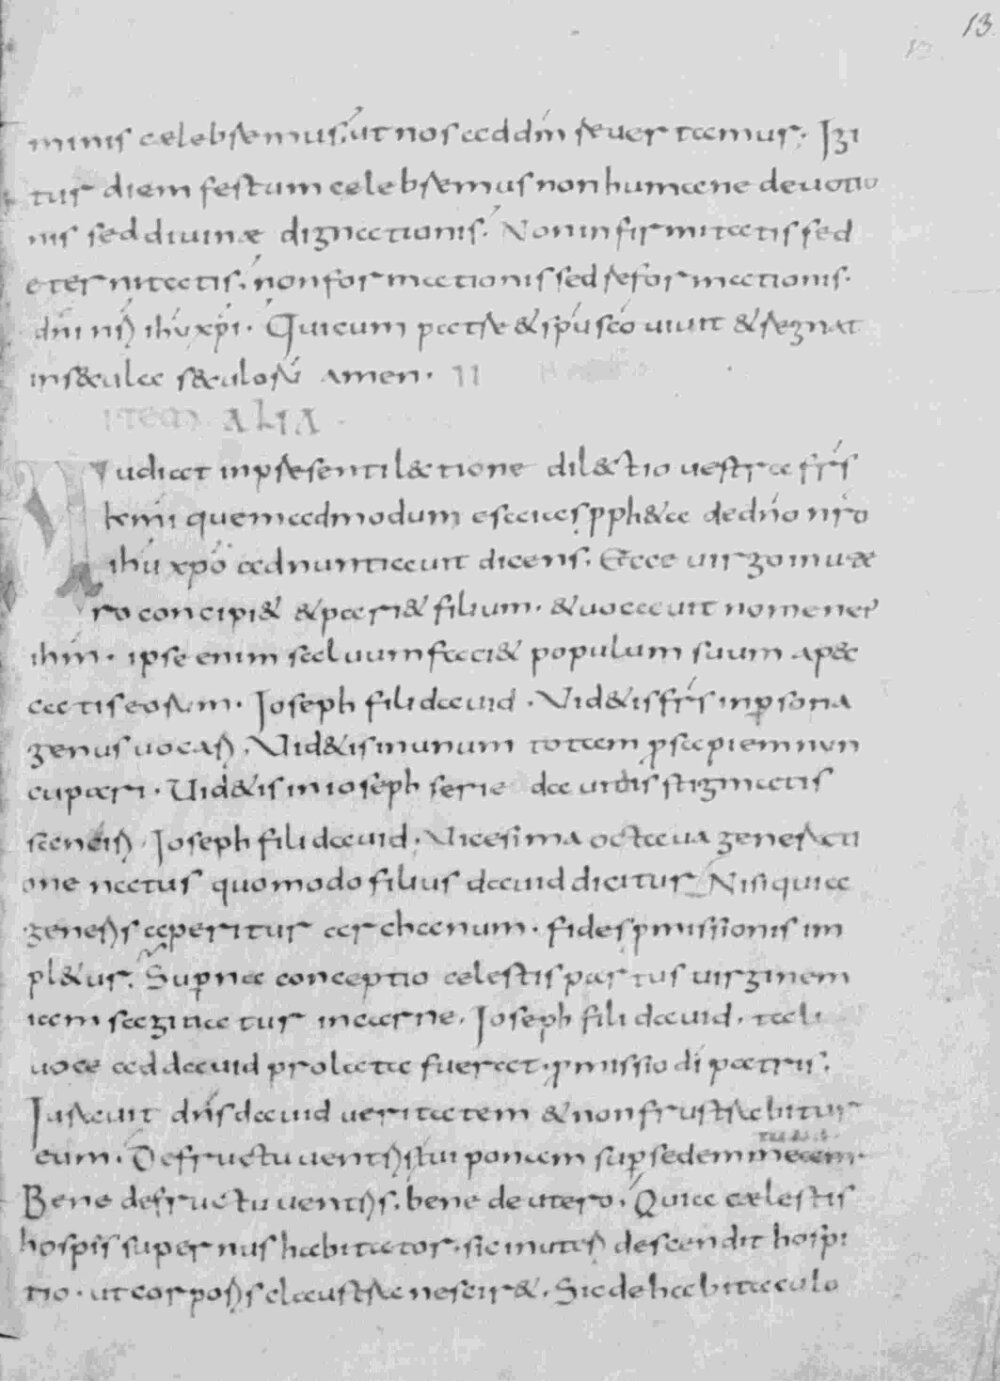 13
minis celebremus, ut nos ad dm̄ reuertamus. Igi
tur diem festum celebremus non humane deuotio
nis sed diuinæ dignationis. Non infirmitatis sed
eternitatis. non formationis sed reformationis.
dn̄i nr̄i ihū xp̄i. Qui cum patre & sp̄u sc̄o uiuit & regnat
in sæcula sæculorū amen. 11
item alia
Audiat in presenti lectione dilectio uestra fr̄s
kmi quemadmodum esaias pph&a de dn̄o nr̄o
ihū xp̄o adnuntiauit dicens. Ecce uirgo in ute
ro concipi& & pari& filium. & uocauit nomen ei'
ihm̄. ipse enim saluum faci& populum suum a pec
catis eorum. Ioseph fili dauid. Vid&is fr̄s in p̄sona
genus uocari. Vid&is in unum totam p̄sapiem nun
cupari. Uid&is in ioseph serie dauitis stigmatis
Ioseph fili dauid. Vicesima octaua generati
one natus quomodo filius dauid dicitur Nisi quia
generis aperitur archanum. fides p̄missionis im
pl&ur. Sup̄na conceptio celestis partus uirginem
iam saginatur in carne. Ioseph fili dauid. tali
uoce ad dauid prolata fuerat. p̄missio di patris.
Iurauit dn̄s dauid ueritatem & non frustrabitur
eum. De fructu uentris tui ponam sup̄ sedem meam.
Bene de fructu uentris. bene de utero. Quia cælestis
hospis supernus habitator. sic in uteri descendit hospi
tio. ut corporis claustra nescir&. Sic de habitaculo